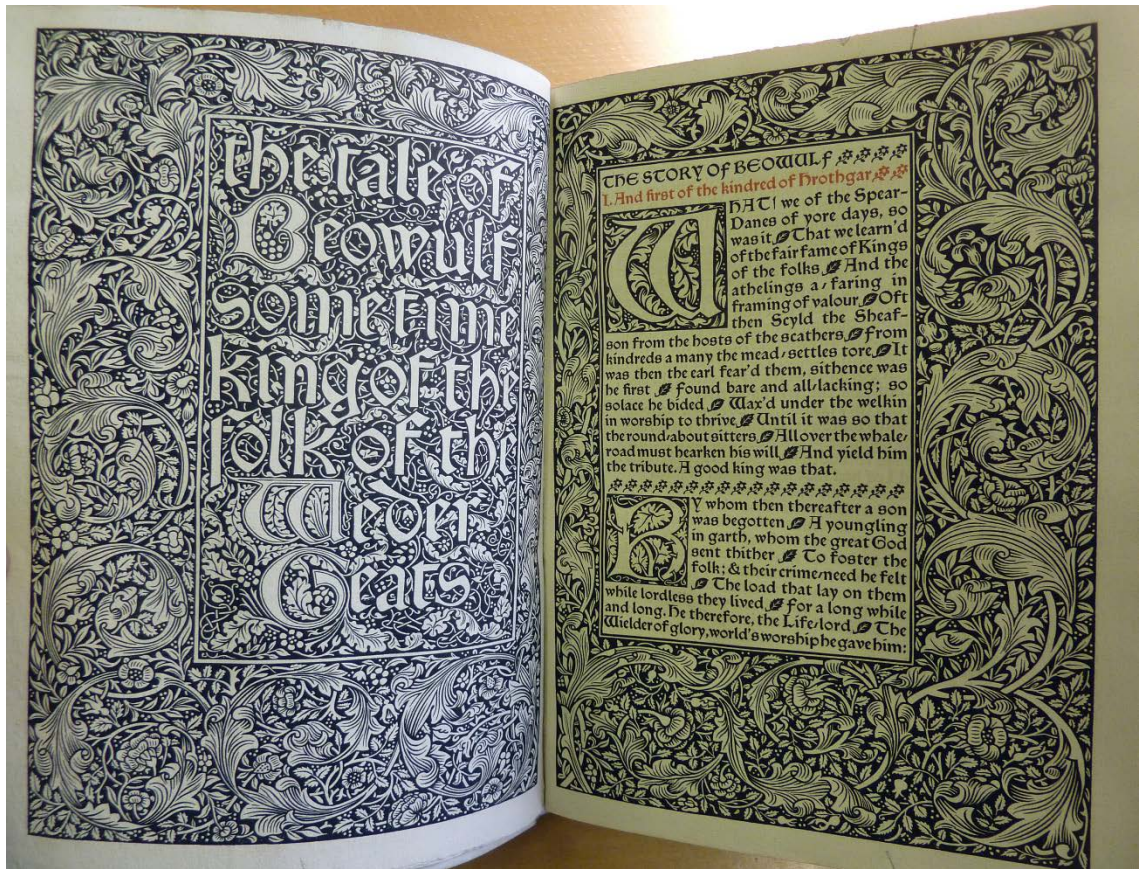 the tale of
Beowulf
sometime
king of the
folk of the
Weder
Geats
THE STORY OF BEOWULF
I. And first of the kindred of Hrothgar
WHAT! we of the Spear-
Danes of yore days, so
was it That we learn'd
of the fair fame of Kings
of the folks And the
athelings a-faring in
framing of valour Oft
then Scyld the Sheaf-
son from the hosts of the scathers From
kindreds a many the mead-settles tore It
was then the earl fear'd them, sithence was
he first Found bare and all-lacking; so
solace he bided Wax'd under the welkin
in worship to thrive Until it was so that
the round-about sitters All over the whale-
road must hearken his will And yield him
the tribute. A good king was that.
BY whom then thereafter a son
was begotten A youngling
in garth, whom the great God
sent thither To foster the
folk; & their crime-need he felt
The load that lay on them
while lordless they lived For a long while
and long. He therefore, the Life-lord The
Wielder of glory, world's worship he gave him: